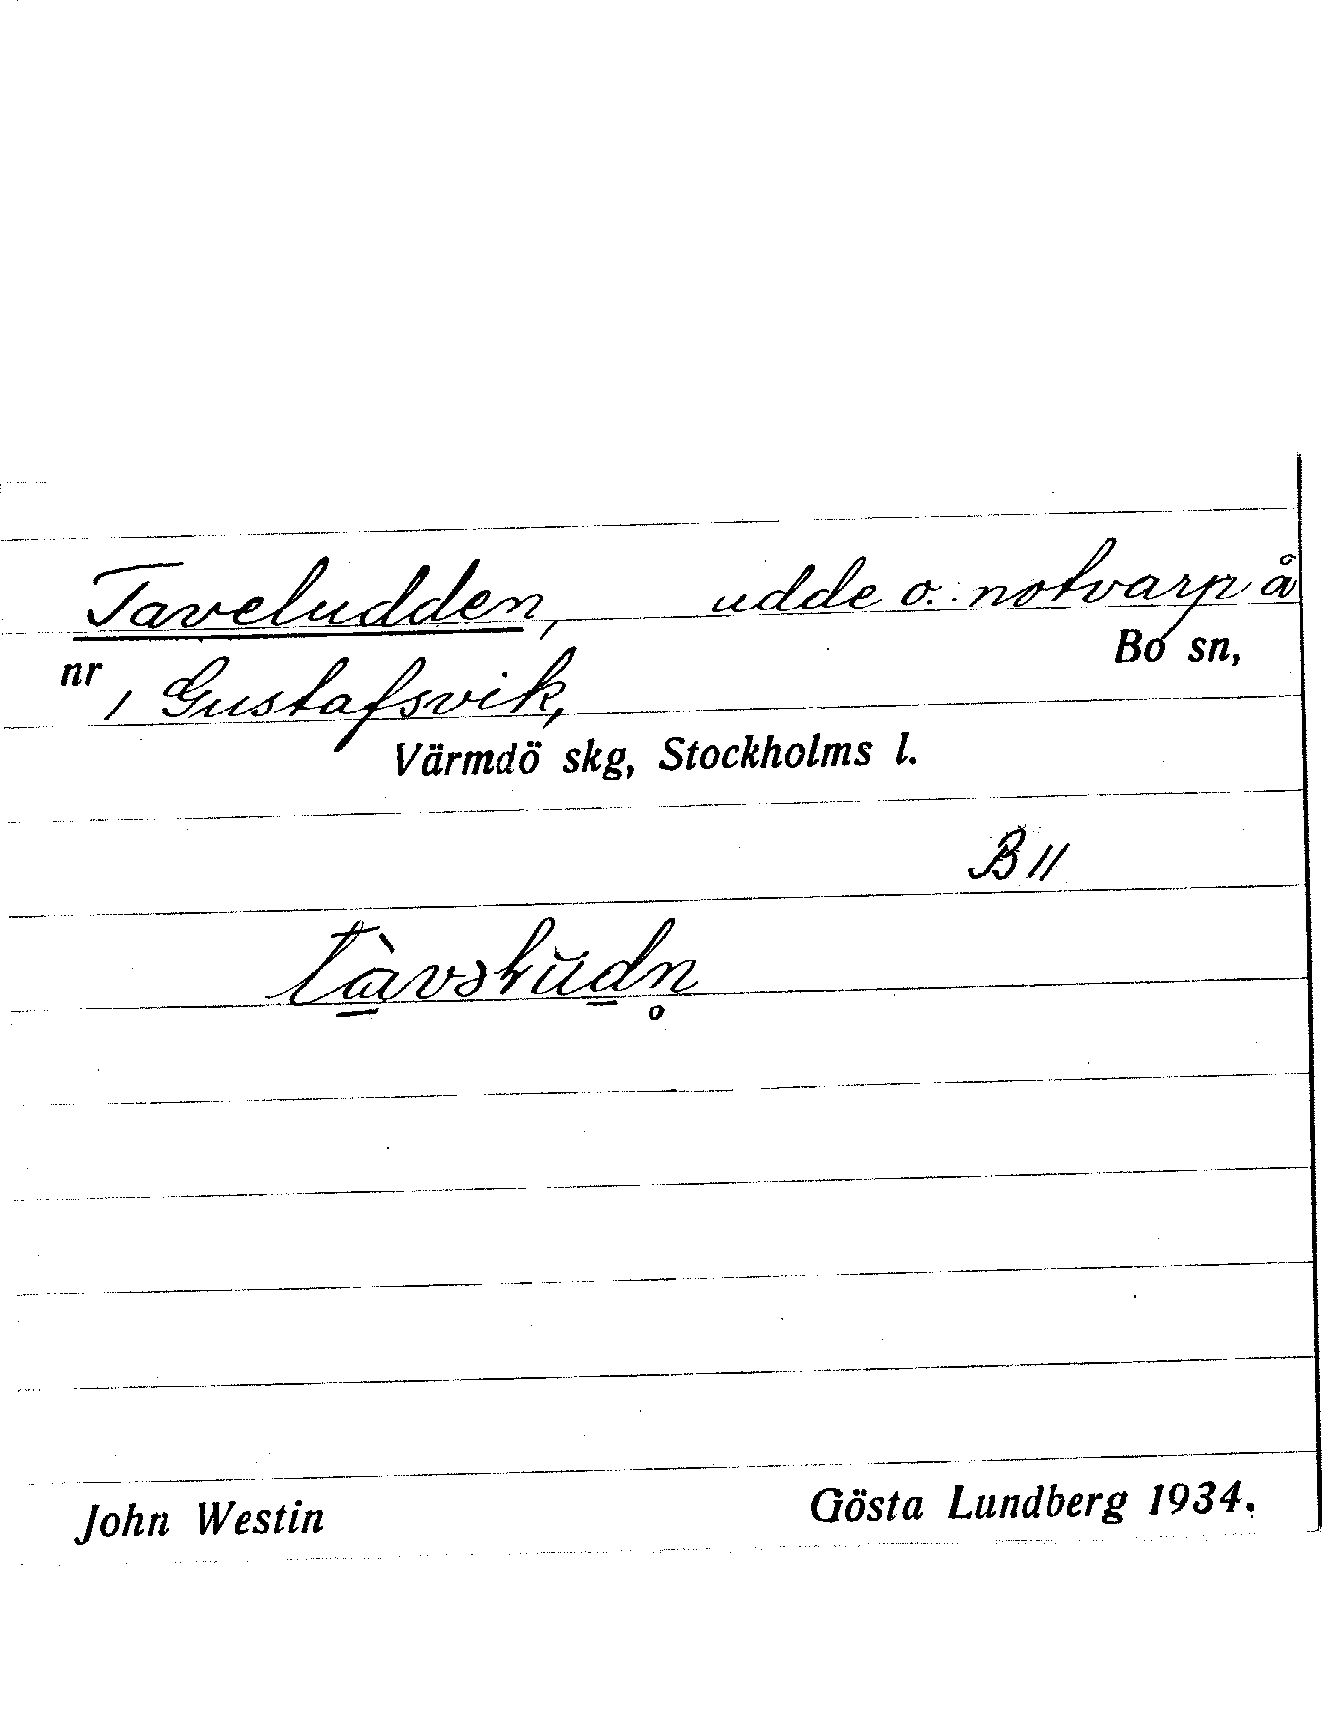 Taveludden, udde o. notvarp å
Bo sn,
nr 1 Gustafsvik,
Värmdö skg, Stockholms l.
B 11
John Westin Gösta Lundberg 1934.